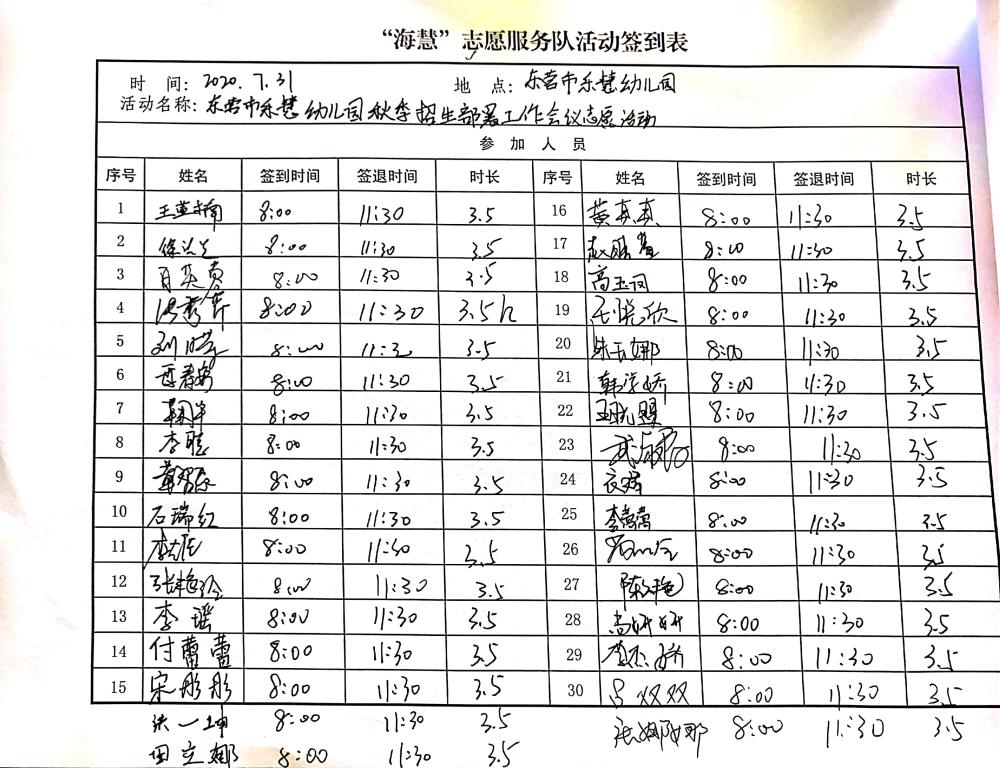 “海慧”志愿服务队活动签到表
时 间: 2020.7.31 地 点: 东营市乐慧幼儿园
活动名称: 东营市乐慧幼儿园秋季招生部署工作会议志愿活动
参 加 人 员
序号 姓名 签到时间 签退时间 时长 序号 姓名 签到时间 签退时间 时长
1 8:00 11:30 3.5 16 黄真真 8:00 11:30 3.5
2 8:00 11:30 3.5 17 8:00 11:30 3.5
3 8:00 11:30 3.5 18 高玉闪 8:00 11:30 3.5
4 8:00 11:30 3.5h 19 王悦欣 8:00 11:30 3.5
5 8:00 11:3 3.5 20 朱玉娜 8:00 11:30 3.5
6 8:00 11:30 3.5 21 韩学娇 8:00 11:30 3.5
7 8:00 11:30 3.5 22 8:00 11:30 3.5
8 李聪 8:00 11:30 3.5 23 8:00 11:30 3.5
9 8:00 11:30 3.5 24 8:00 11:30 3.5
10 石瑞红 8:00 11:30 3.5 25 李蒿蒿 8:00 11:30 3.5
11 8:00 11:30 3.5 26 8:00 11:30 3.5
12 张艳玲 8:00 11:30 3.5 27 陈艳 8:00 11:30 3.5
13 李瑶 8:00 11:30 3.5 28 尚妍妍 8:00 11:30 3.5
14 付蕾蕾 8:00 11:30 3.5 29 8:00 11:30 3.5
15 宋彤彤 8:00 11:30 3.5 30 吕双双 8:00 11:30 3.5
一坤 8:00 11:30 3.5 张娜娜 8:00 11:30 3.5
田立娜 8:00 11:30 3.5